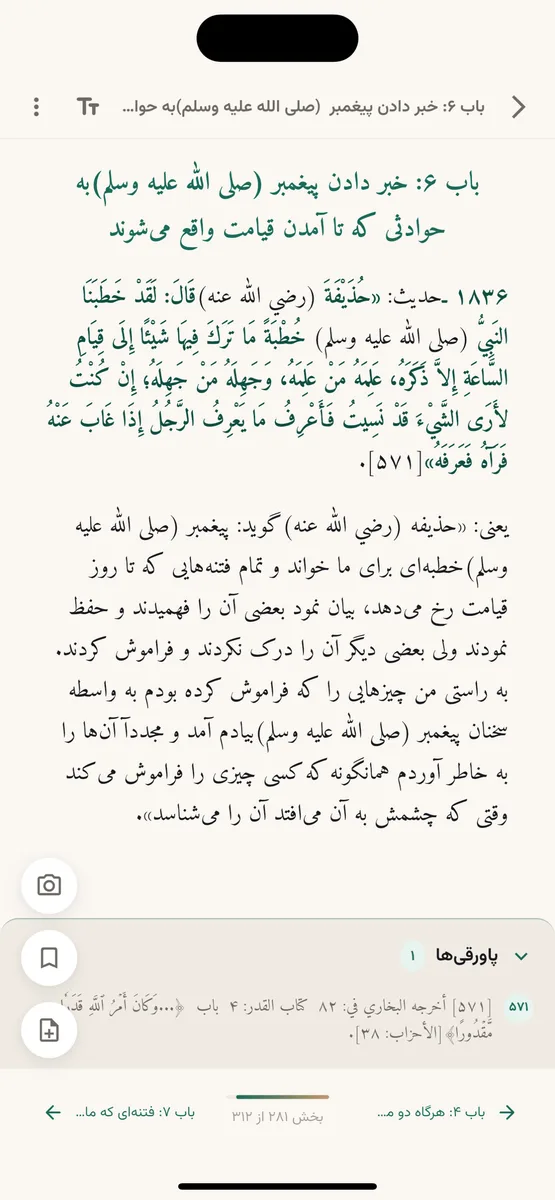 باب ۶: خبر دادن پیغمبر (صلی الله علیه وسلم)به حوا...
باب ۶: خبر دادن پیغمبر (صلی الله علیه وسلم)به
حوادثی که تا آمدن قیامت واقع می‌شوند
۱۸۳۶ ـحدیث: «حُذَيْفَةَ (رضي الله عنه)قَالَ: لَقَدْ خَطَبَنَا
النَبِيُّ (صلی الله علیه وسلم) خُطْبَةً مَا تَرَكَ فِيهَا شَيْئًا إِلَى قِيَامِ
السَّاعَةِ إِلاَّ ذَكَرَهُ، عَلِمَهُ مَنْ عَلِمَهُ، وَجَهِلَهُ مَنْ جَهِلَهُ؛ إِنْ كُنْتُ
لأَرَى الشَّيْءَ قَدْ نَسِيتُ فَأَعْرِفُ مَا يَعْرِفُ الرَّجُلُ إِذَا غَابَ عَنْهُ
فَرَآهُ فَعَرَفَهُ»[۵۷۱].
یعنی: «حذیفه (رضي الله عنه)گوید: پیغمبر (صلی الله علیه
وسلم)خطبه‌ای برای ما خواند و تمام فتنه‌هایی که تا روز
قیامت رخ می‌دهد، بیان نمود بعضی آن را فهمیدند و حفظ
نمودند ولی بعضی دیگر آن را درک نکردند و فراموش کردند.
به راستی من چیزهایی را که فراموش کرده بودم به واسطه
سخنان پیغمبر (صلی الله علیه وسلم)بیادم آمد و مجددآ آن‌ها را
به خاطر آوردم همانگونه که کسی چیزی را فراموش می‌کند
وقتی که چشمش به آن می‌افتد آن را می‌شناسد».
پاورقی‌ها ۱
۵۷۱ [۵۷۱] أخرجه البخاري في: ۸۲ كتاب القدر: ۴ باب ﴿...وَكَانَ أَمۡرُ ٱللَّهِ
مَّقۡدُورًا﴾[الأحزاب: ۳۸].
باب ۴: هرگاه دو م...
بخش ۲۸۱ از ۳۱۲
باب ۷: فتنه‌ای که ما...